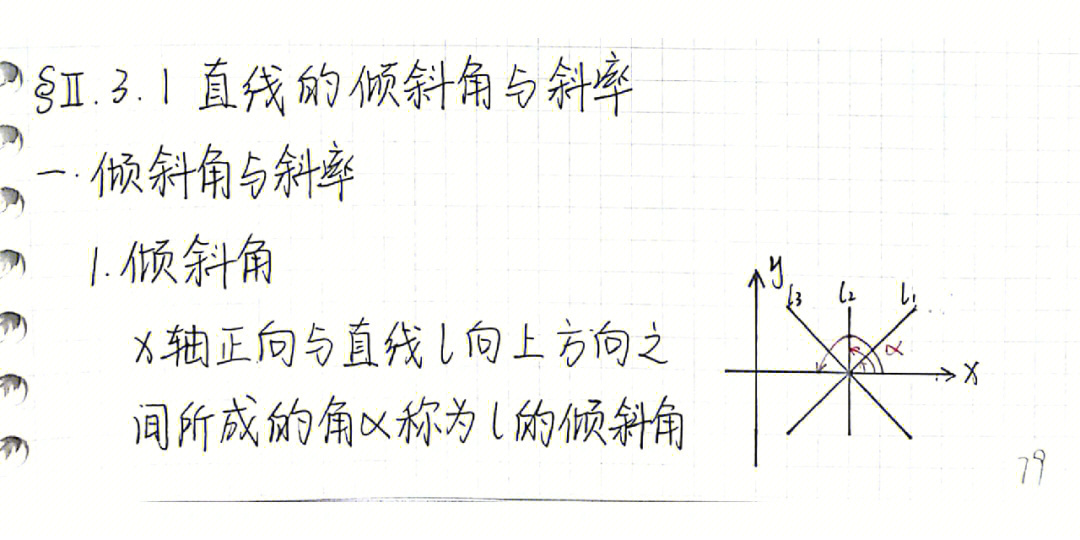 §II.3.1 直线的倾斜角与斜率
一.倾斜角与斜率
1.倾斜角
x轴正向与直线l向上方向之
间所成的角α称为l的倾斜角
y
l3 l2 l1
α
x
79